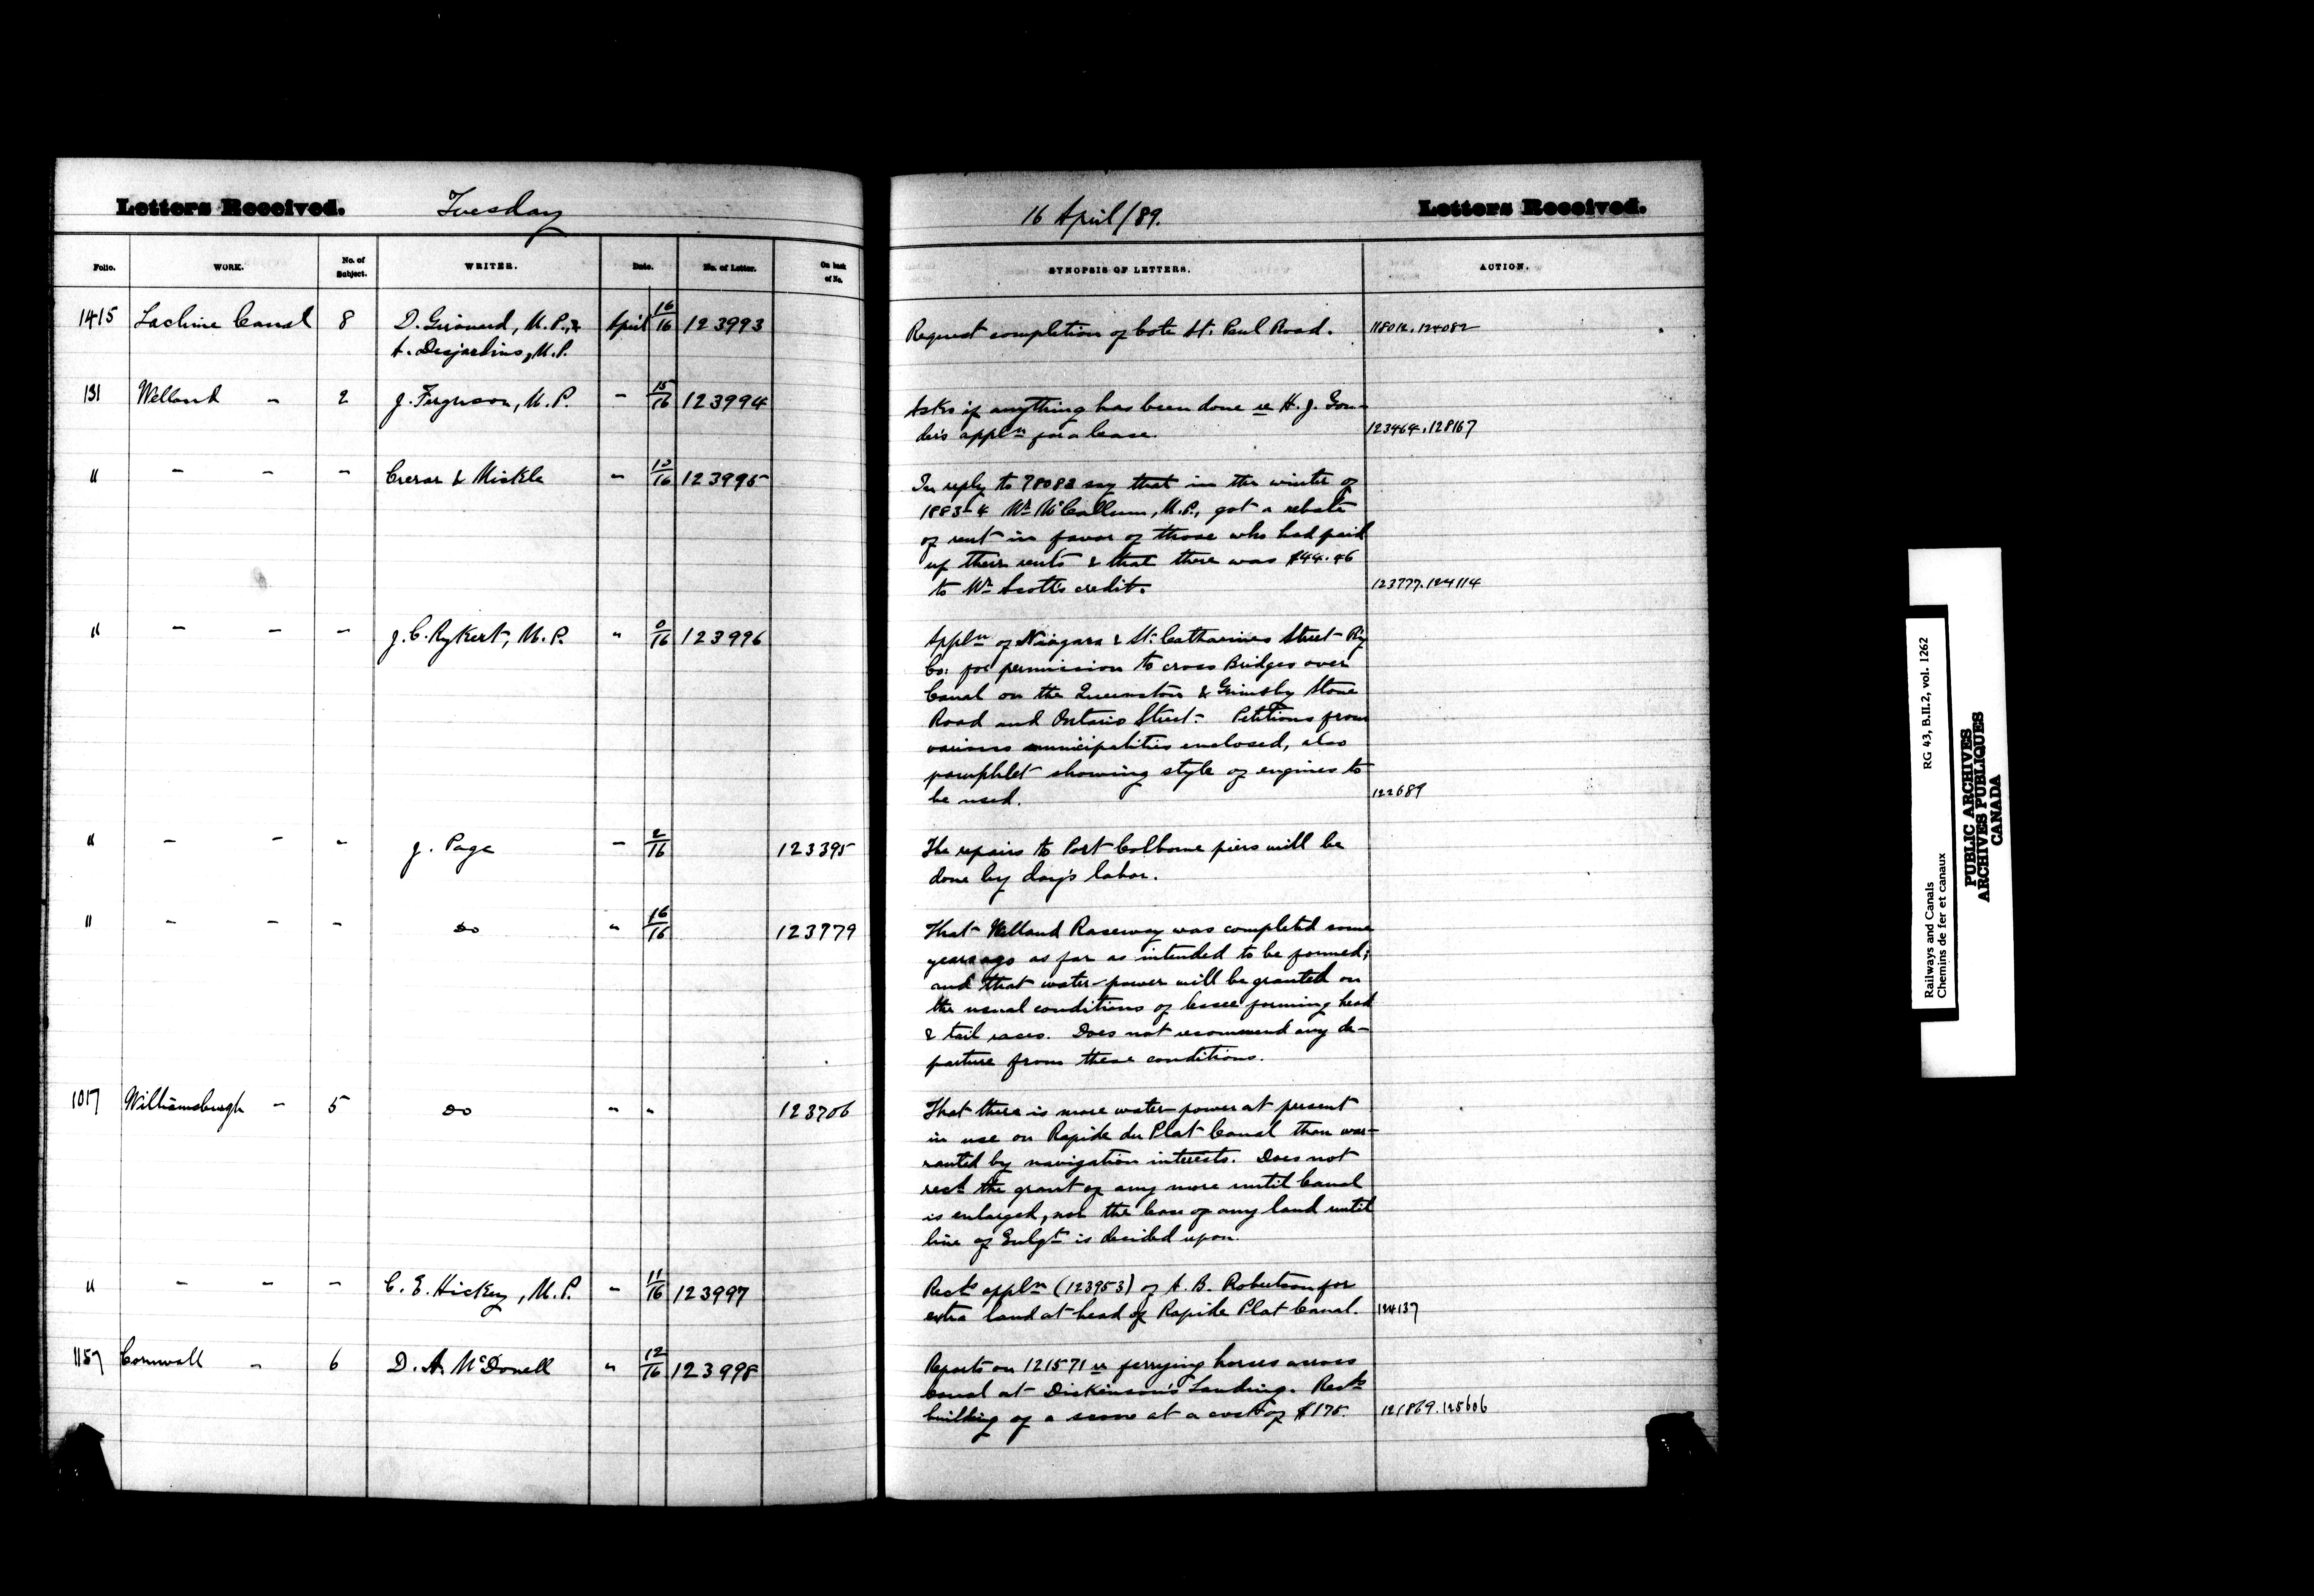 Letters Received. Tuesday
Folio. WORK. No. of Subject. WRITER. Date. No. of Letter. On back of No.
1415 Lachine Canal 8 D. Girouard, M.P., & April 16/16 123993
A. Desjardins, M.P.
131 Welland " 2 J. Ferguson, M.P. " 15/16 123994
" " " " Crerar & Mickle " 13/16 123995
" " " " J. C. Rykert, M.P. " 0/16 123996
" " " " J. Page " 2/16 123395
" " " " Do " 16/16 123779
1017 Williamsburgh " 5 Do " " 123706
" " " " C. E. Hickey, M.P. " 11/16 123997
1157 Cornwall " 6 D. A. McDonell " 12/16 123998
16 April/89. Letters Received.
SYNOPSIS OF LETTERS. ACTION.
Request completion of Cote St. Paul Road. 118012.124082
Asks if anything has been done re H. J. Gon-
der's appln for a lease. 123464.128167
In reply to 78082 say that in the winter of
1883-4 Mr McCallum, M.P., got a rebate
of rent in favor of those who had paid
up their rents & that there was $44.46
to Mr Scott's credit. 123777.124114
Appln of Niagara & St. Catharines Street Ry
Co: for permission to cross Bridges over
Canal on the Queenston & Grimsby Stone
Road and Ontario Street. Petitions from
various municipalities enclosed, also
pamphlet showing style of engines to
be used. 122689
The repairs to Port Colborne piers will be
done by day's labor.
That Welland Raceway was completed some
years ago as far as intended to be formed;
and that water-power will be granted on
the usual conditions of lessee forming head
& tail races. Does not recommend any de-
parture from these conditions.
That there is more water-power at present
in use on Rapide du Plat Canal than war-
ranted by navigation interests. Does not
recd the grant of any more until Canal
is enlarged, nor the lease of any land until
line of Enlgt is decided upon.
Recds appln (123953) of A. B. Robertson for
extra land at head of Rapide Plat Canal. 124137
Reports on 121571 re ferrying horses across
Canal at Dickinson's Landing. Recds
building of a scow at a cost of $175. 121869.125606
Railways and Canals RG 43, B.II.2, vol. 1262
Chemins de fer et canaux
PUBLIC ARCHIVES
ARCHIVES PUBLIQUES
CANADA